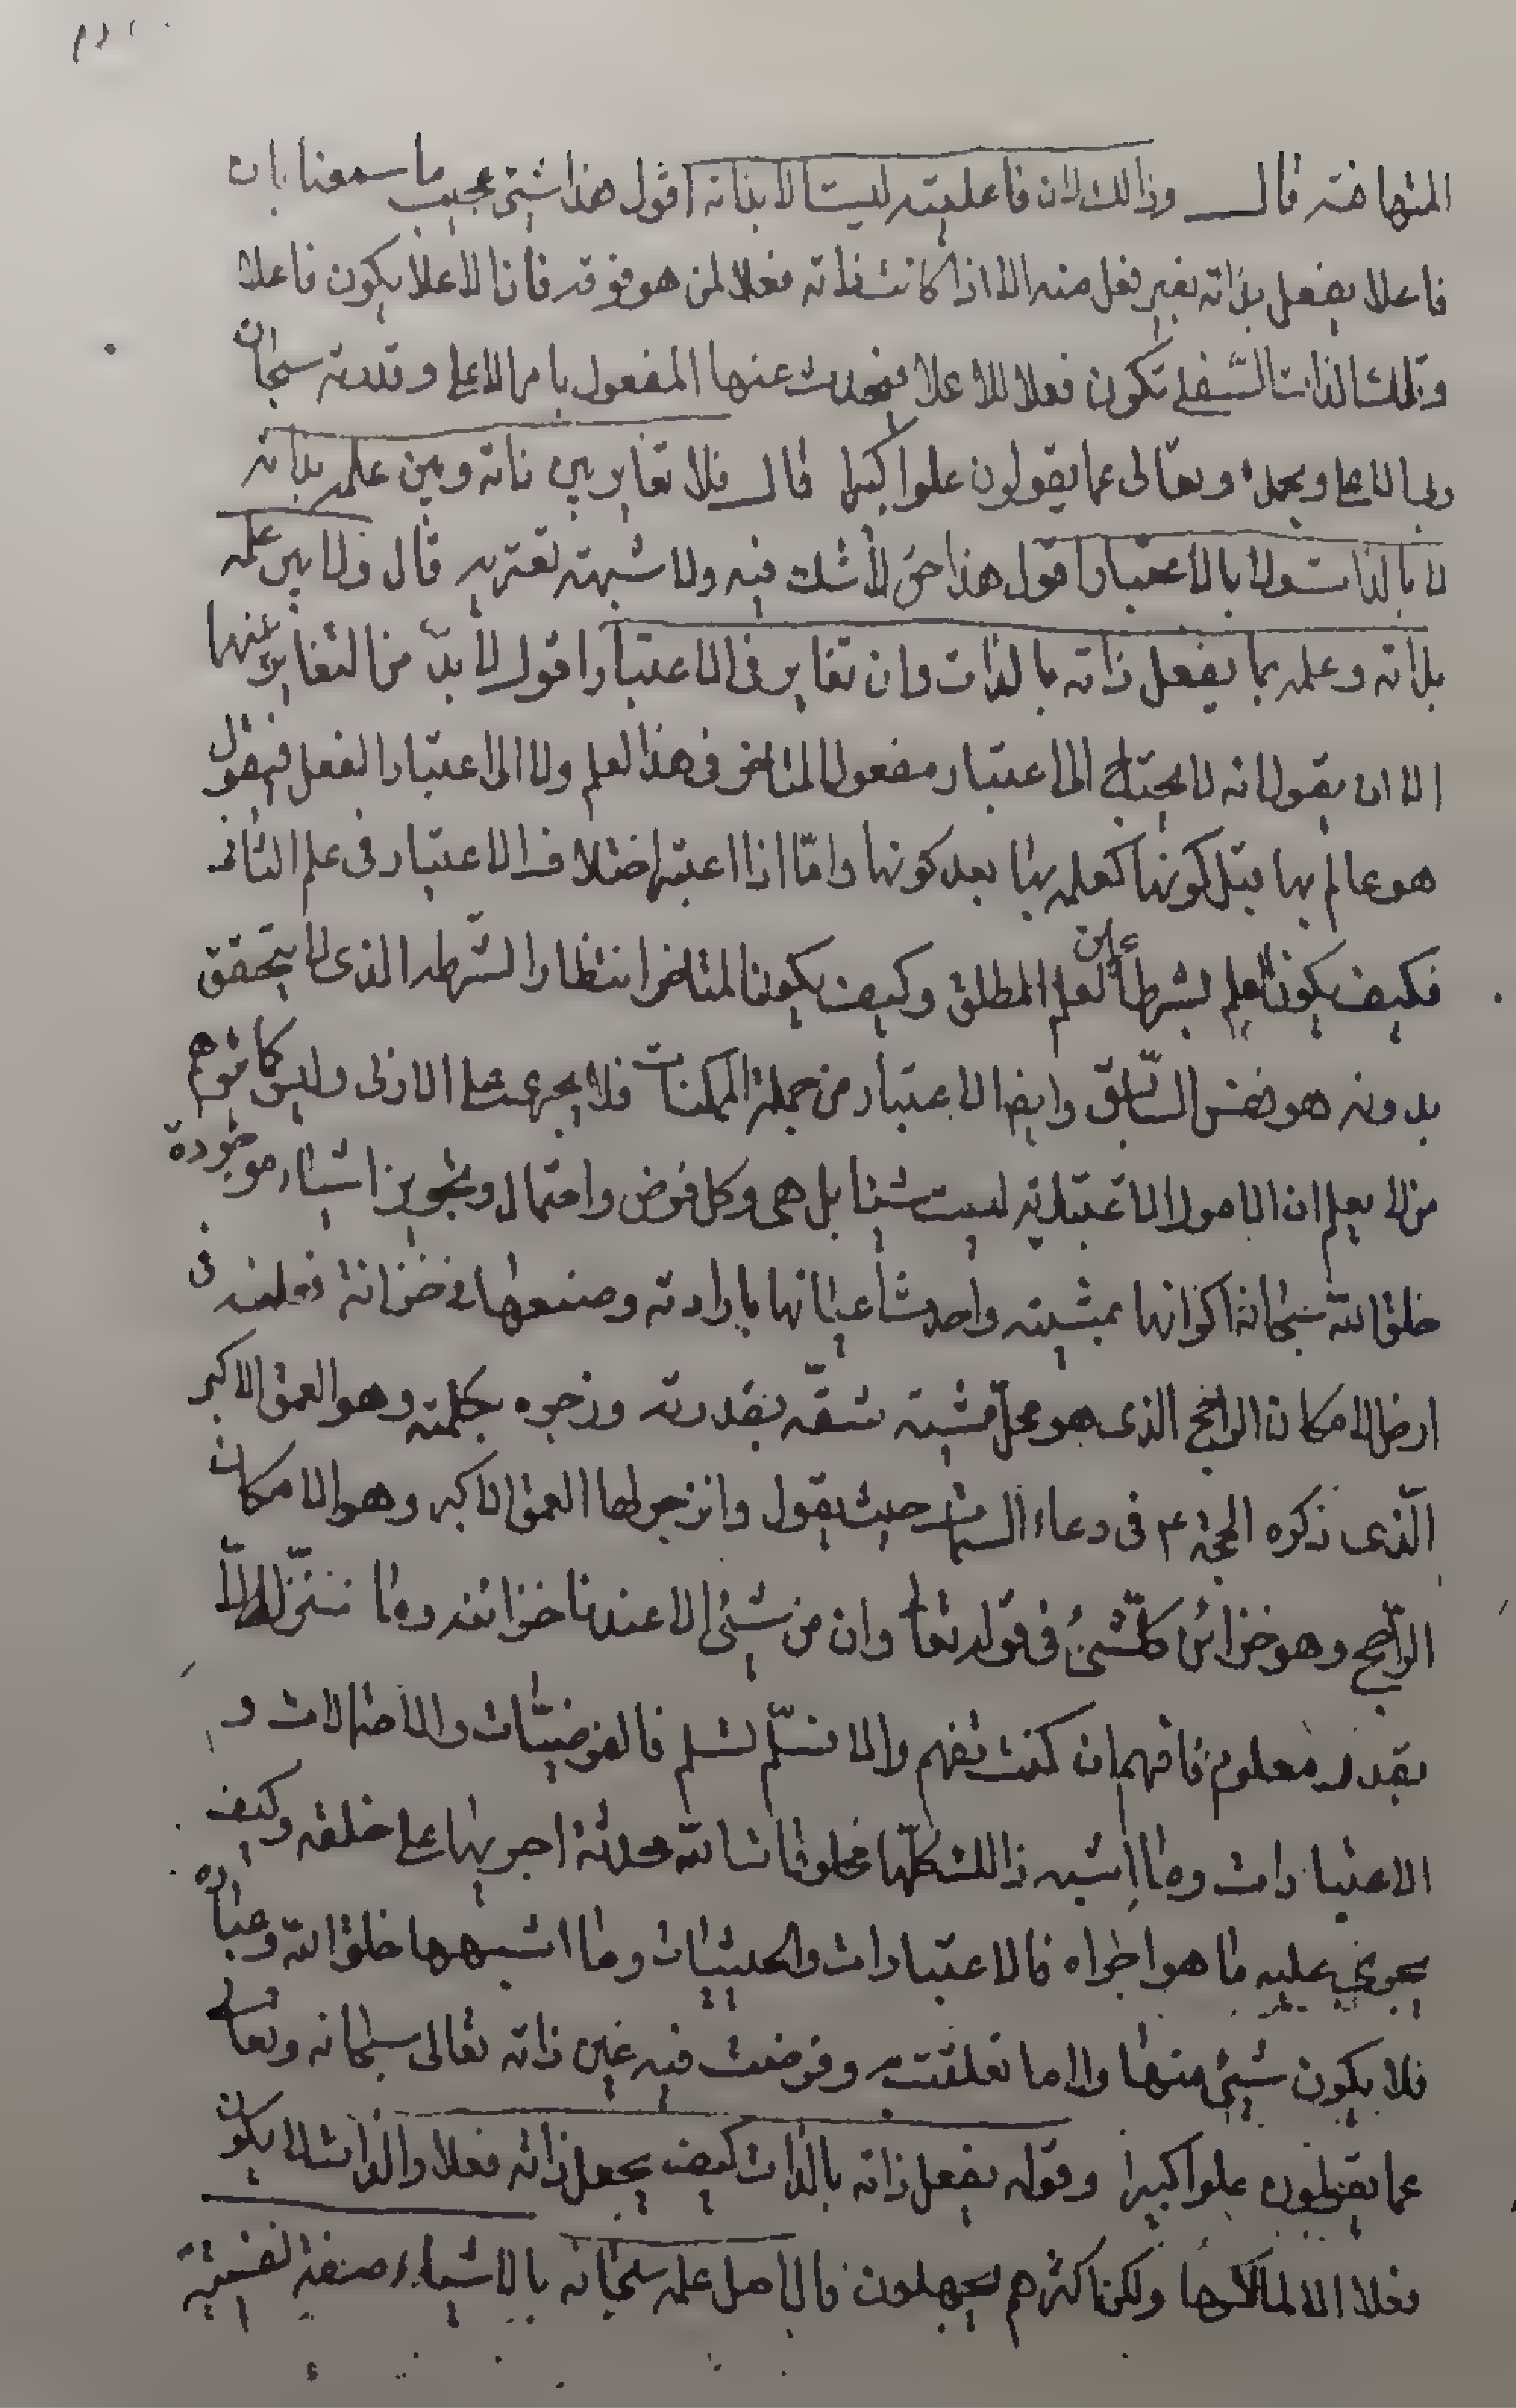 المتهافته قال وذالك لان فاعليته ليست الا بذاته اقول هذا شئ عجيب ما سمعنا بان
فاعلا يفعل بذاته بغير فعل منه الا اذا كانت ذاته فعلا لمن هو فوقه فانا الاعلا يكون فاعلا
وتلك الذات السفلى تكون فعلا للاعلا فيحدث عنها المفعول بامر الاعلى وقدرته سبحان
ربى الاعلى وبحمده وتعالى عما يقولون علوا كبيرا قال فلا تغاير بين ذاته وبين علمه بذاته
لا بالذات ولا بالاعتبار اقول هذا حق لا شك فيه ولا شبهة تعتريه قال ولا بين علمه
بذاته وعلمه بما يفعل ذاته بالذات وان تغاير فى الاعتبار اقول لا بد من التغاير بينها
الا ان يقول انه لا يحتاج الى اعتبار مفعول المتاخر فى هذا العلم ولا الى اعتبار الفعل فيقول
هو عالم بها قبل كونها كعلمه بها بعد كونها واما اذا اعتبر اختلاف الاعتبار فى علم الثانى
فكيف يكون العلم بشرط عين العلم المطلق وكيف يكون المتاخر انتظارا لشرطه الذى لا يتحقق
بدونه هو نفس السابق وايضا الاعتبار من جملة الممكنات فلا يجرى على الازلى وليس كما توهم
من لا يعلم ان الامور الاعتبارية ليست شيئا بل هى وكل فرض واحتمال وتجويز اشياء موجودة
خلق الله سبحانه اكوانها بمشيته واحدث اعيانها بارادته وصنعها فى خزانة فى
ارض الامكان الراجح الذى هو محل مشيته شقه بقدرته وزجره بكلمته وهو العمق الاكبر
الذى ذكره الحجة ع فى دعاء السمات حيث يقول وانزجر لها العمق الاكبر وهو الامكان
الراجح وهو خزائن كل شئ فى قوله تعالى وان من شئ الا عندنا خزائنه وما ننزله الا
بقدر معلوم فافهم ان كنت تفهم والا فسلم تسلم فالفرضيات والاحتمالات و
الاعتبارات وما اشبه ذالك كلها مخلوقات لله محدثة اجريها على خلقه وكيف
يجرى عليه ما هو اجراه فالاعتبارات والحيثيات وما اشبهها خلق الله وعباده
فلا يكون شئ منها ولا ما تعلقت به وفرضت فيه عين ذاته تعالى سبحانه وتعالى
عما يقولون علوا كبيرا وقوله يفعل ذاته بالذات كيف يجعل ذاته فعلا والذات لا يكون
فعلا الا لمالكها ولكن اكثرهم يجهلون قال اصل علمه سبحانه بالاشياء صفة نفسية